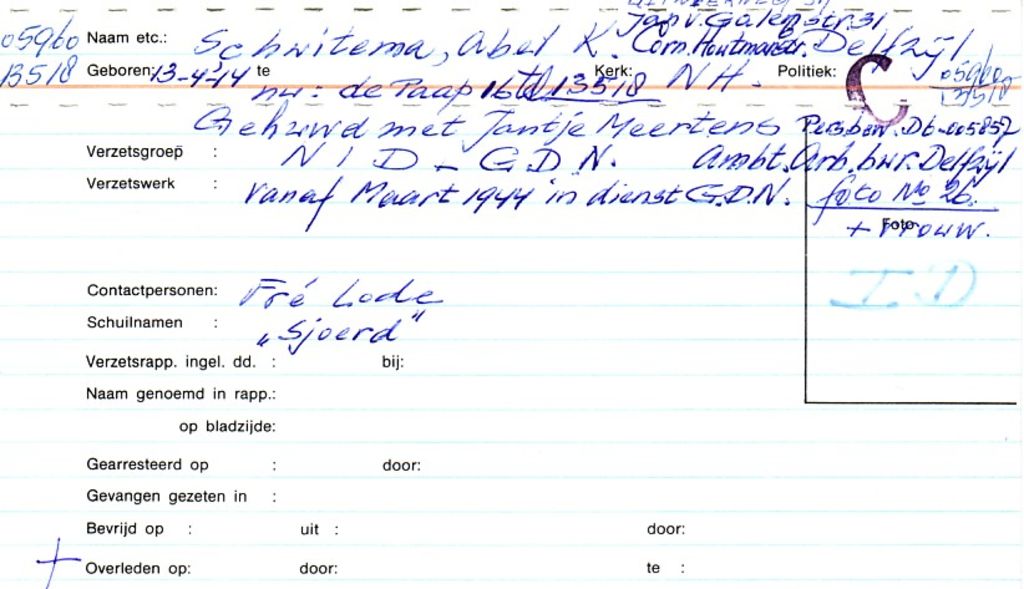 Jan v. Galenstr. 31
05960 Naam etc.: Schuitema, Abel K. Corn. Houtmanstr. Delfzijl
13518 Geboren: 13-4-'14 te Kerk: NH. Politiek: C 05960
nu: de Paap 16 13518 13518
Gehuwd met Jantje Meertens Pers.bew. Db-005857
Verzetsgroep : N I D - G.D.N. Ambt. Arb.bur. Delfzijl
Verzetswerk : vanaf Maart 1944 in dienst G.D.N. foto No 26.
Foto
+ vrouw.
I D
Contactpersonen: Fré Lode
Schuilnamen : „Sjoerd"
Verzetsrapp. ingel. dd. : bij:
Naam genoemd in rapp.:
op bladzijde:
Gearresteerd op : door:
Gevangen gezeten in :
Bevrijd op : uit : door:
+ Overleden op: door: te :